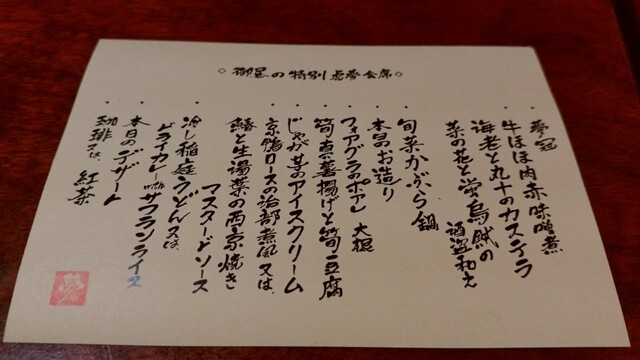 ◇御昼の特別恵夢会席◇
・夢冠
牛ほほ肉赤味噌煮
海老と丸十のカステラ
菜の花と蛍烏賊の
酒盗和え
・旬菜かぶら鍋
・本日のお造り
・フォアグラのポアレ 大根
・筍真薯揚げと筍豆腐
・じゃが芋のアイスクリーム
・京鴨ロースの治部煮風又は
鰆と生湯葉の西京焼き
マスタードソース
・冷し稲庭うどん又は
ドライカレー サフランライス
・本日のデザート
・珈琲又は 紅茶